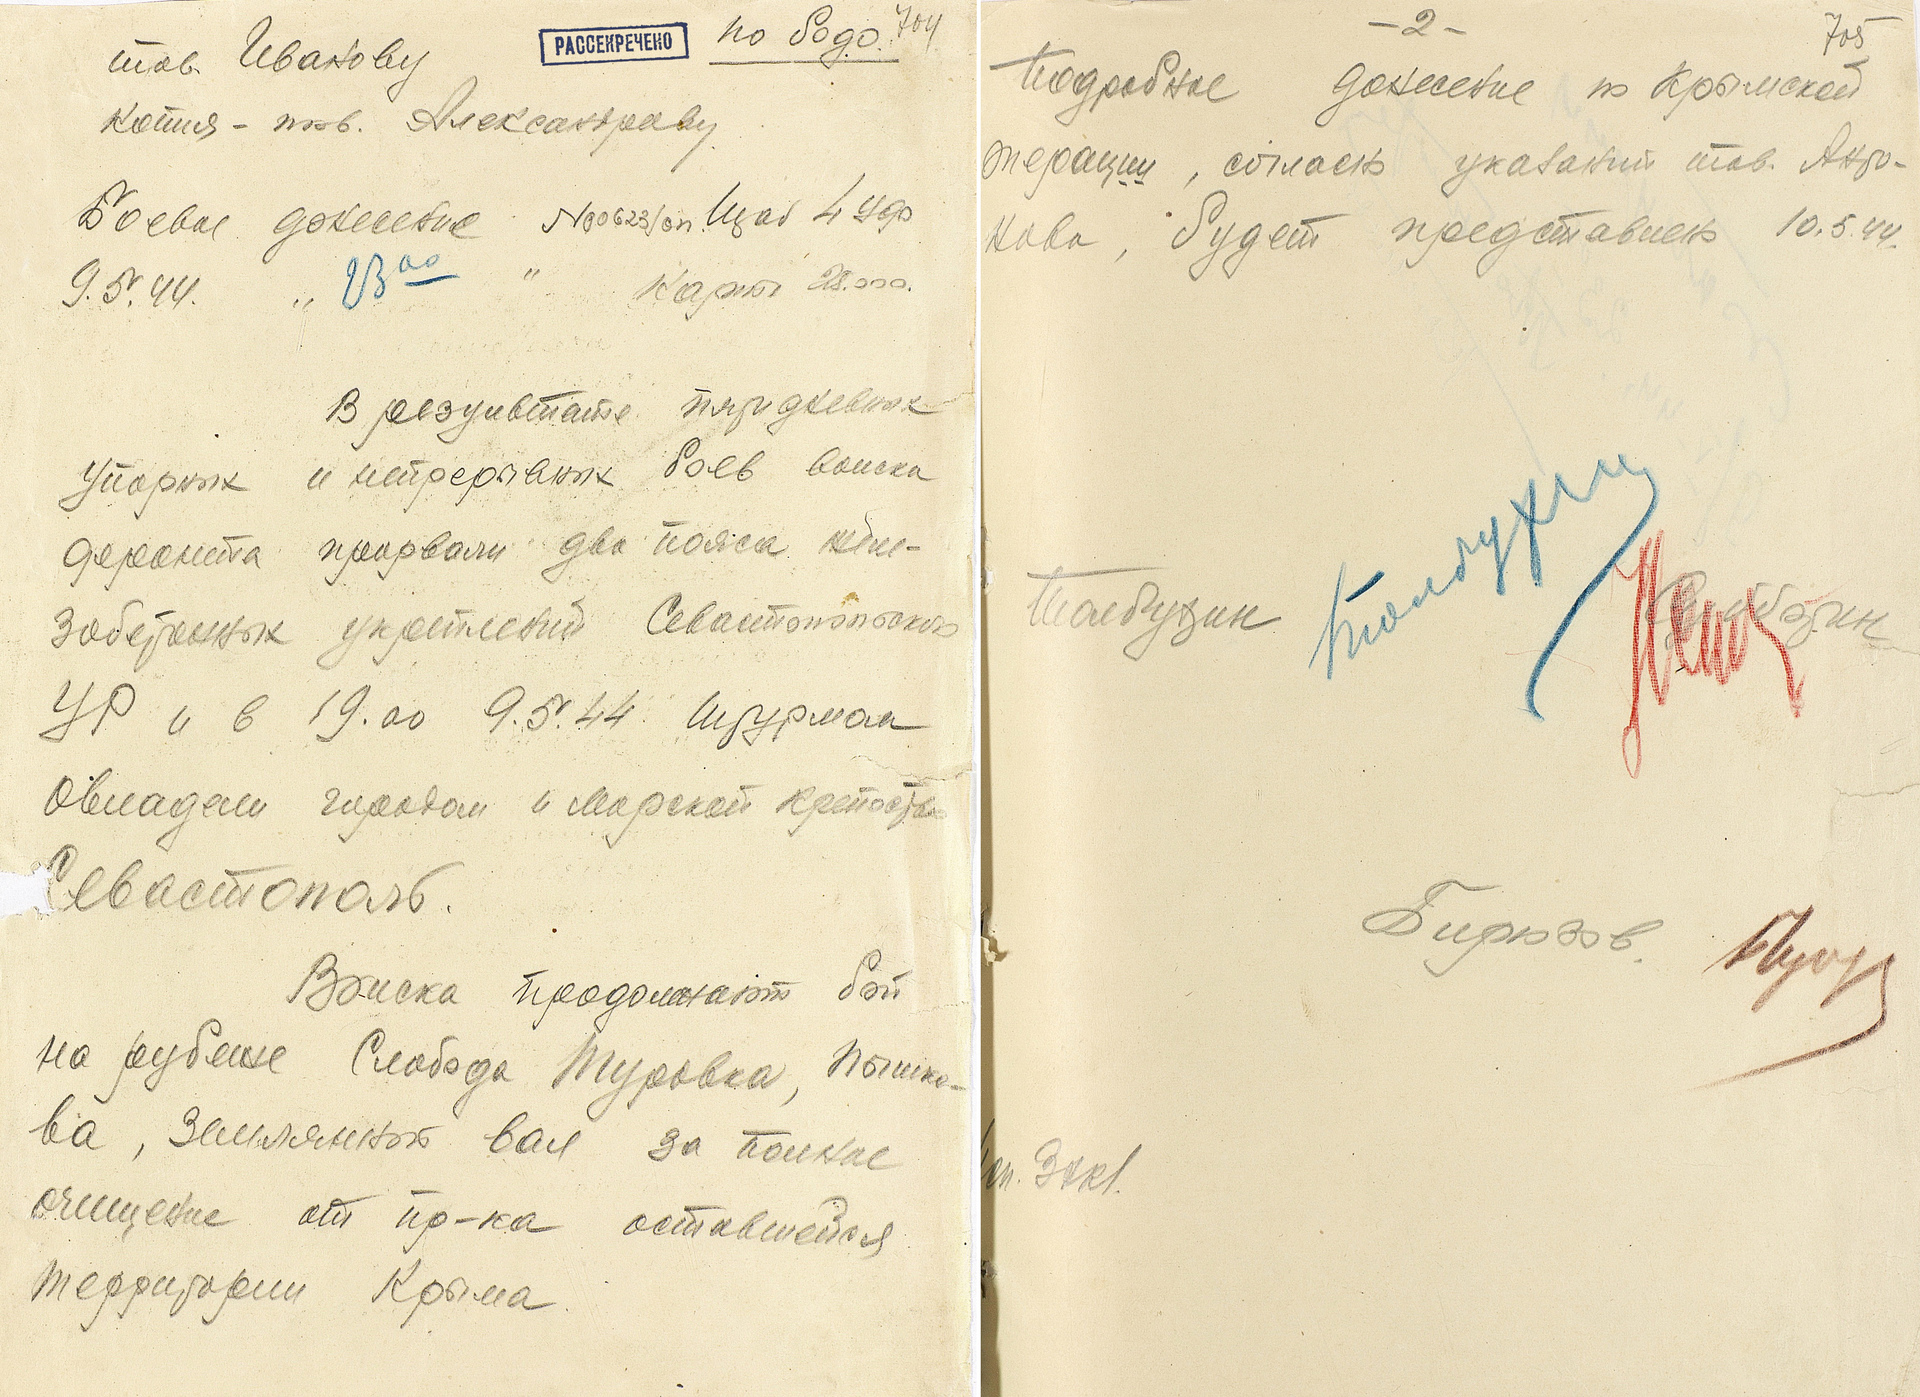 РАССЕКРЕЧЕНО
по Бодо.
704
тов. Иванову
Копия – тов. Александрову.
Боевое донесение №00623/оп. Штаб 4 Уф
9.5.44. „ 23 00 " Карта 28.000.
В результате пятидневных
упорных и непрерывных боев войска
фронта прорвали два пояса желе-
зобетонных укреплений Севастопольского
УР и в 19.00 9.5.44 штурмом
овладели городом и морской крепостью
Севастополь.
Войска продолжают бой
на рубеже Слобода Туровка, Пышко-
ва, Земляный вал за полное
очищение от пр-ка оставшейся
территории Крыма.
– 2 –
705
Подробное донесение по Крымской
операции, согласно указаний тов. Анто-
нова, будет представлено 10.5.44.
Толбухин Толбухин Субботин
Бирюзов.
Экз.